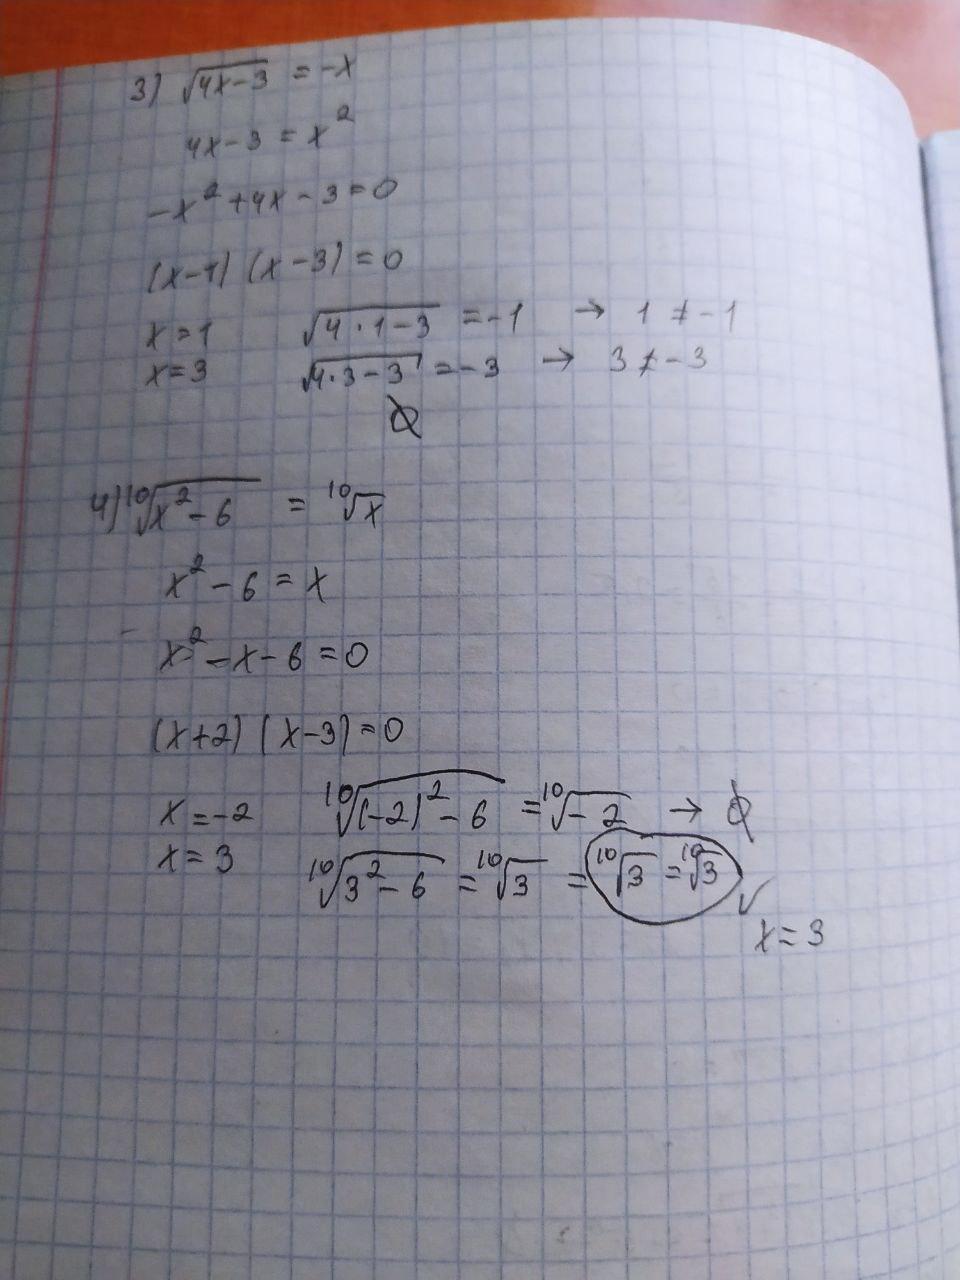 3) √(4x-3) = -x
4x-3 = x²
-x²+4x-3=0
(x-1)(x-3)=0
x=1 √(4·1-3) = -1 → 1 ≠ -1
x=3 √(4·3-3) = -3 → 3 ≠ -3
∅
4) ¹⁰√(x²-6) = ¹⁰√x
x²-6=x
x²-x-6=0
(x+2)(x-3)=0
x=-2 ¹⁰√((-2)²-6) = ¹⁰√(-2) → ∅
x=3 ¹⁰√(3²-6) = ¹⁰√3 = ¹⁰√3 = ¹⁰√3 ✓
x=3